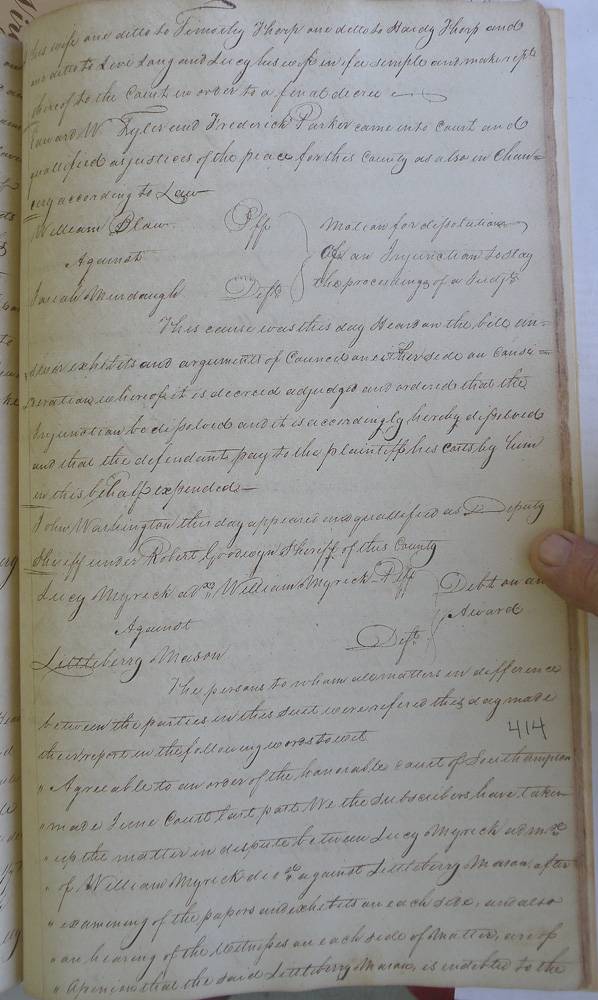 his wife one ditto to Timothy Thorp one ditto to Hardy Thorp and
one ditto to Levi Long and Lucy his wife in fee simple and make rept.
thereof to the Court in order to a final decree
Edward W. Tyler and Frederick Parker came into Court and
qualified as justices of the peace for this County as also in Chan=
cery according to Law
William Blow Plff
Against
Josiah Murdaugh Deft
Motion for dissolution
Of an Injunction to Stay
the proceedings of a Judgt.
This cause was this day Heard on the bill an=
swer exhibits and arguments of Council on either side on consi=
deration whereof it is decreed adjudged and ordered that the
Injunction be dissolved and it is accordingly hereby dissolved
and that the defendant pay to the plaintiff his costs by him
in this behalf expended
John Washington this day appeared and qualified as Deputy
Sheriff under Robert Goodwyn Sheriff of this County
Lucy Myrick adx. William Myrick Plff
Against
Littleberry Mason Deft.
Debt on an
Award
The persons to whom all matters in difference
between the parties in this suit were refered this day made
their report in the following words to wit
414
" Agreeable to an order of the honorable Court of Southampton
" made June Court last past We the subscribers have taken
" up the matter in dispute between Lucy Myrick admx.
" of William Myrick decd. against Littleberry Mason, after
" examening of the papers and exhibits on each side, and also
" an hearing of the Witnesses on each side of Matter, are of
" Apinion that the said Littleberry Mason, is indebted to the